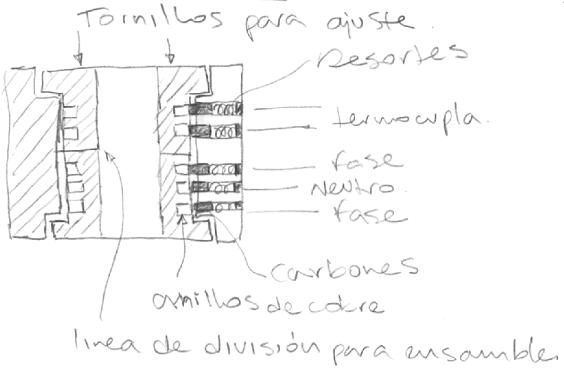 Tornillos para ajuste.
Resortes
termocupla.
fase
Neutro.
fase
carbones
anillos de cobre
linea de división para ensamble.